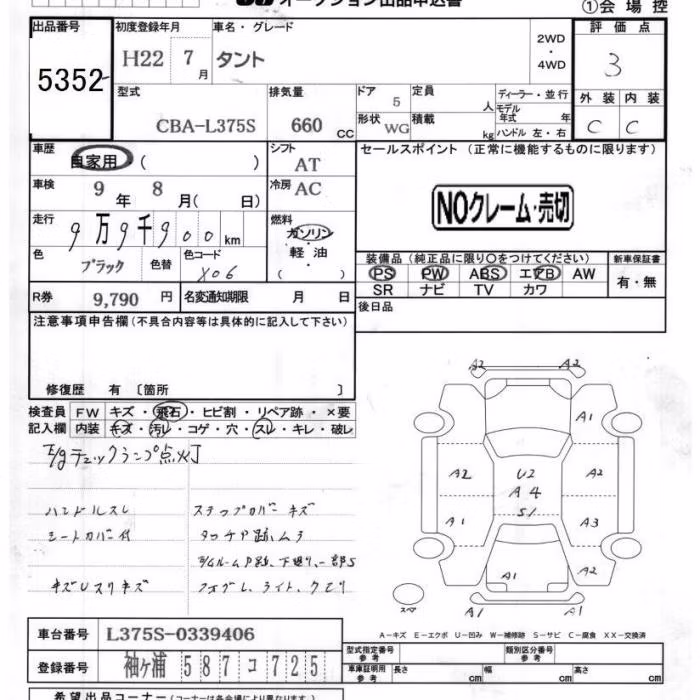 オークション出品申込書
①会場控
出品番号 5352
初度登録年月 H22 7月
車名・グレード タント
2WD・4WD
評価点 3
型式 CBA-L375S
排気量 660 CC
ドア 5
形状 WG
定員 人
積載 kg
ディーラー・並行
モデル年式 年
ハンドル 左・右
外装 内装
C C
車歴 自家用 ( )
シフト AT
セールスポイント (正常に機能するものに限ります)
NOクレーム・売切
車検 9年 8月( 日)
冷房 AC
走行 9万9千900km
燃料 ガソリン・軽油 ( )
色 ブラック 色替
色コード X06
装備品 (純正品に限り○をつけてください)
PS PW ABS エアB AW
SR ナビ TV カワ
新車保証書 有・無
R券 9,790 円
名変通知期限 月 日
後日品
注意事項申告欄 (不具合内容等は具体的に記入して下さい)
修復歴 有 〔箇所 〕
検査員記入欄
FW キズ・飛石・ヒビ割・リペア跡・×要
内装 キズ・汚レ・コゲ・穴・スレ・キレ・破レ
E/gチェックランプ点灯
ハンドルスレ ステップカバーキズ
シートカバー付 タッチP跡、ムラ
キズUスリキズ フォグL、ライト、クモリ
A2 A2
A1
A2 U2 A2
A4
A1 S1 A3
A2
A1 A1
スペア A1 A1
A-キズ E-エクボ U-凹み W-補修跡 S-サビ C-腐食 XX-交換済
車台番号 L375S-0339406
登録番号 袖ヶ浦 587 コ 725
型式指定番号 参考
類別区分番号 参考
車庫証明用 参考 長さ cm 幅 cm 高さ cm
希望出品コーナー (コーナーは各会場により異なります)